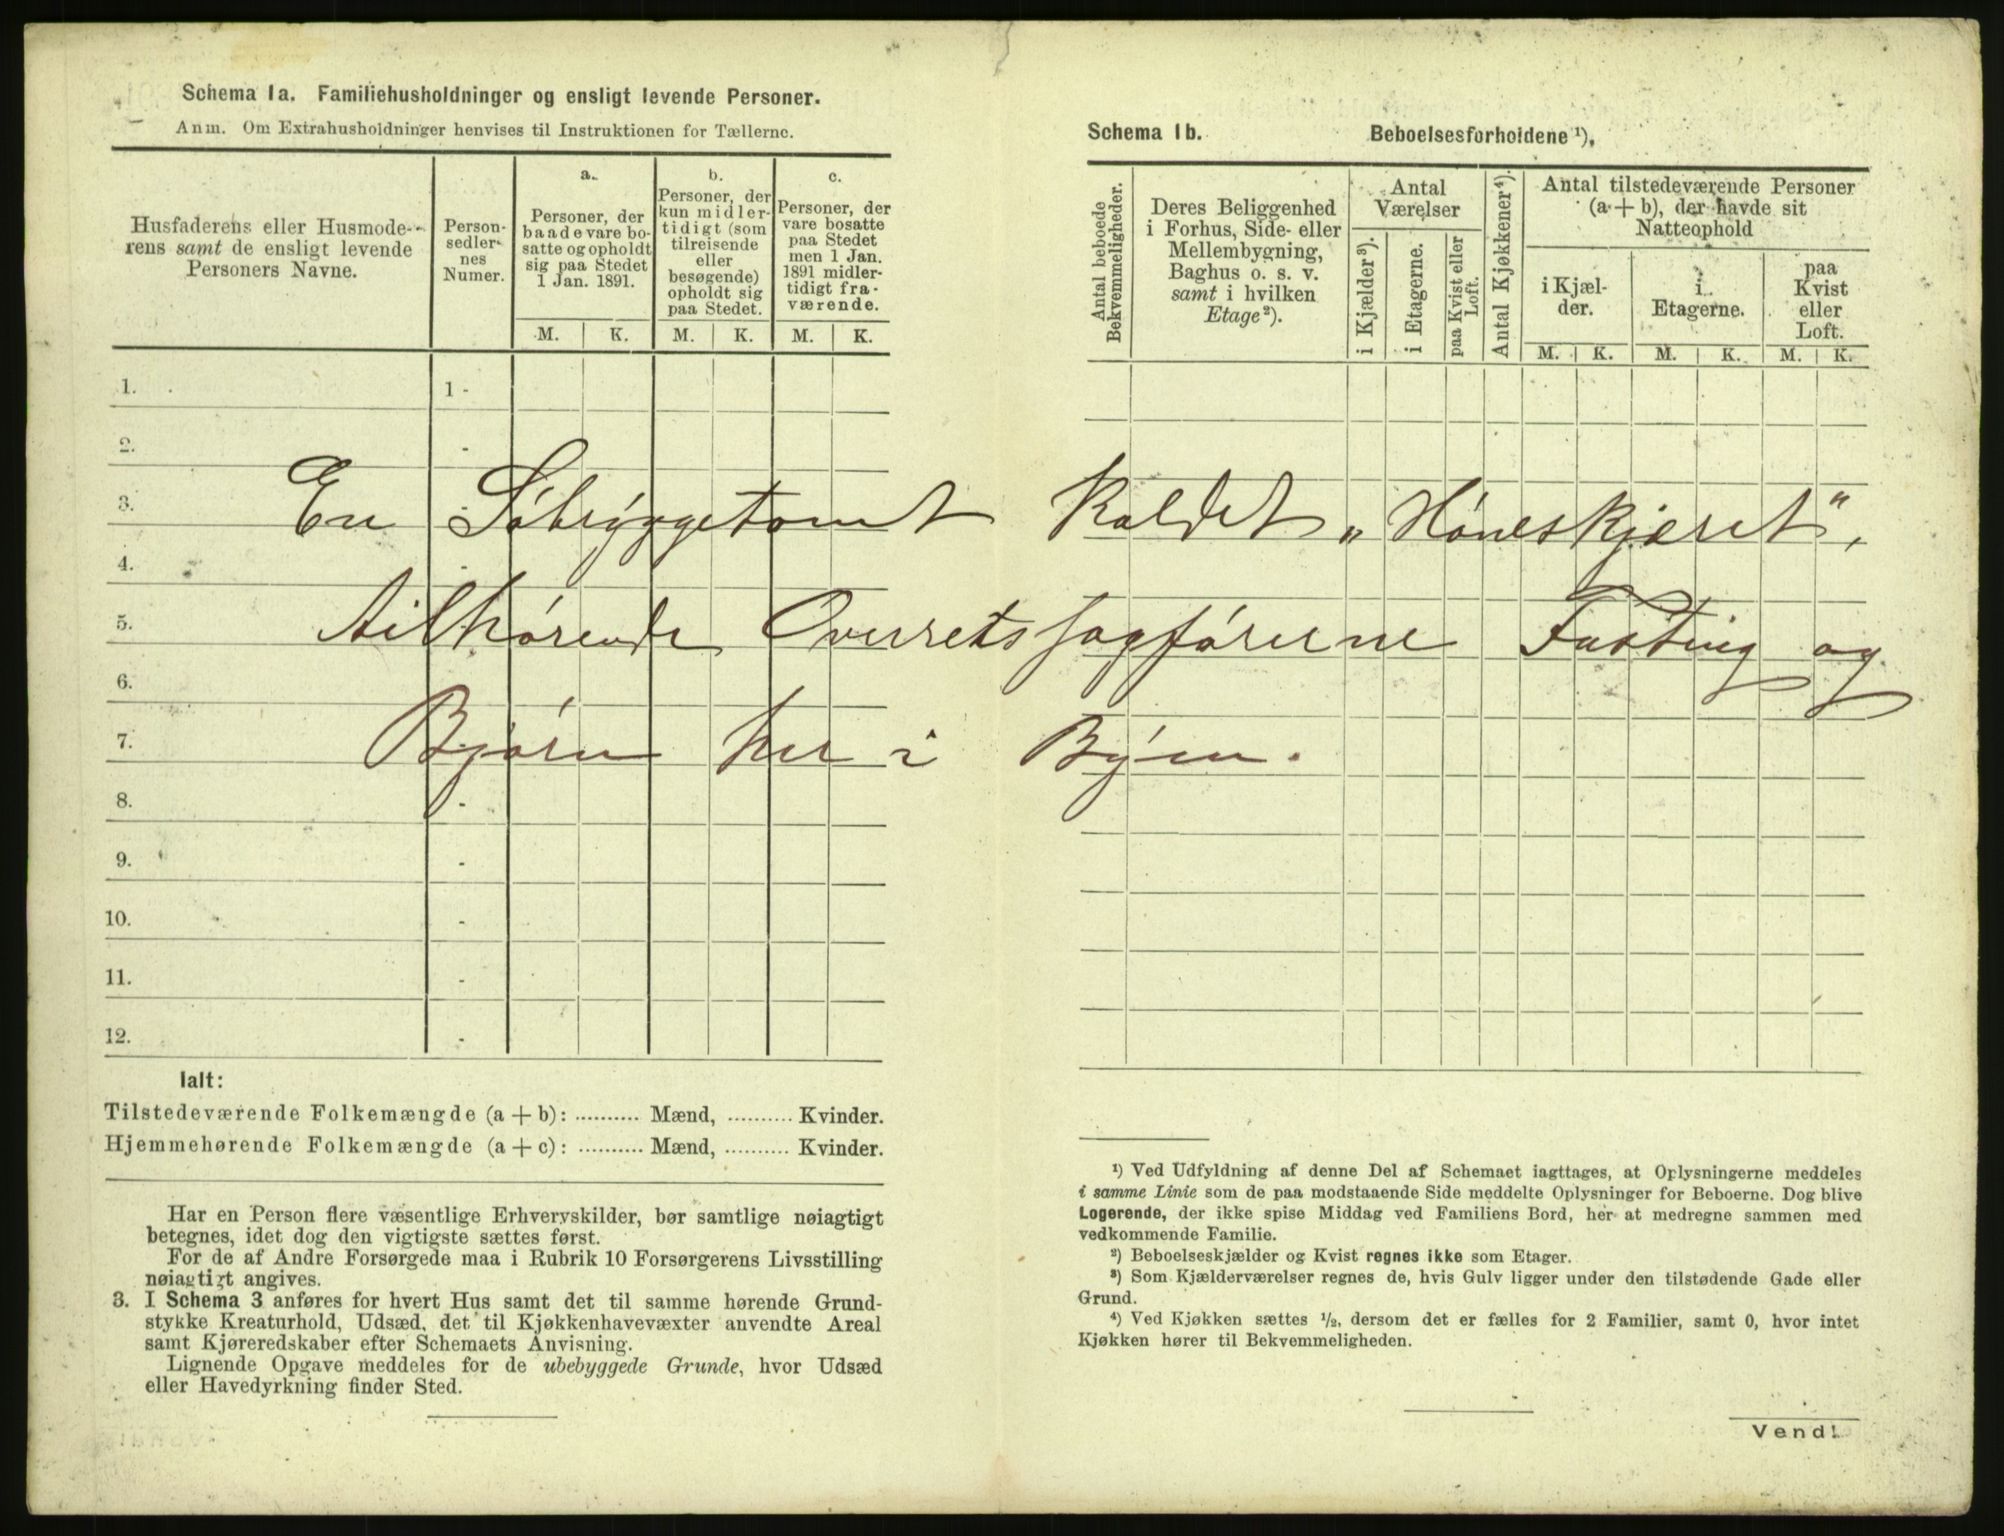 Schema 1a. Familiehusholdninger og ensligt levende Personer.
Anm. Om Extrahusholdninger henvises til Instruktionen for Tællerne.
Husfaderens eller Husmode-
rens samt de ensligt levende
Personers Navne.
Person-
sedler-
nes
Numer.
a.
Personer, der
baade vare bo-
satte og opholdt
sig paa Stedet
1 Jan. 1891.
M. K.
b.
Personer, der
kun midler-
tidigt (som
tilreisende
eller
besøgende)
opholdt sig
paa Stedet.
M. K.
c.
Personer, der
vare bosatte
paa Stedet
men 1 Jan.
1891 midler-
tidigt fra-
værende.
M. K.
1. 1 -
2. -
3. -
4.
5.
6.
7.
8. -
9. -
10. -
11. -
12. -
Ialt:
Tilstedeværende Folkemængde (a + b): .......... Mænd, .......... Kvinder.
Hjemmehørende Folkemængde (a + c): .......... Mænd, .......... Kvinder.
Har en Person flere væsentlige Erhvervskilder, bør samtlige nøiagtigt
betegnes, idet dog den vigtigste sættes først.
For de af Andre Forsørgede maa i Rubrik 10 Forsørgerens Livsstilling
nøiagtigt angives.
3. I Schema 3 anføres for hvert Hus samt det til samme hørende Grund-
stykke Kreaturhold, Udsæd, det til Kjøkkenhavevæxter anvendte Areal
samt Kjøreredskaber efter Schemaets Anvisning.
Lignende Opgave meddeles for de ubebyggede Grunde, hvor Udsæd
eller Havedyrkning finder Sted.
Schema 1b. Beboelsesforholdene ¹).
Antal beboede
Bekvemmeligheder.
Deres Beliggenhed
i Forhus, Side- eller
Mellembygning,
Baghus o. s. v.
samt i hvilken
Etage ²).
Antal
Værelser
i Kjælder ³).
i Etagerne.
paa Kvist eller
Loft.
Antal Kjøkkener ⁴).
Antal tilstedeværende Personer
(a + b), der havde sit
Natteophold
i Kjæl-
der.
i
Etagerne.
paa
Kvist
eller
Loft.
M. K. M. K. M. K.
En Söbryggetomt kaldet „Höneskjæret",
tilhørende Overretssagförerne Fasting og
Bjørn her i Byen.
¹) Ved Udfyldning af denne Del af Schemaet iagttages, at Oplysningerne meddeles
i samme Linie som de paa modstaaende Side meddelte Oplysninger for Beboerne. Dog blive
Logerende, der ikke spise Middag ved Familiens Bord, her at medregne sammen med
vedkommende Familie.
²) Beboelseskjælder og Kvist regnes ikke som Etager.
³) Som Kjælderværelser regnes de, hvis Gulv ligger under den tilstødende Gade eller
Grund.
⁴) Ved Kjøkken sættes ½, dersom det er fælles for 2 Familier, samt 0, hvor intet
Kjøkken hører til Bekvemmeligheden.
Vend!